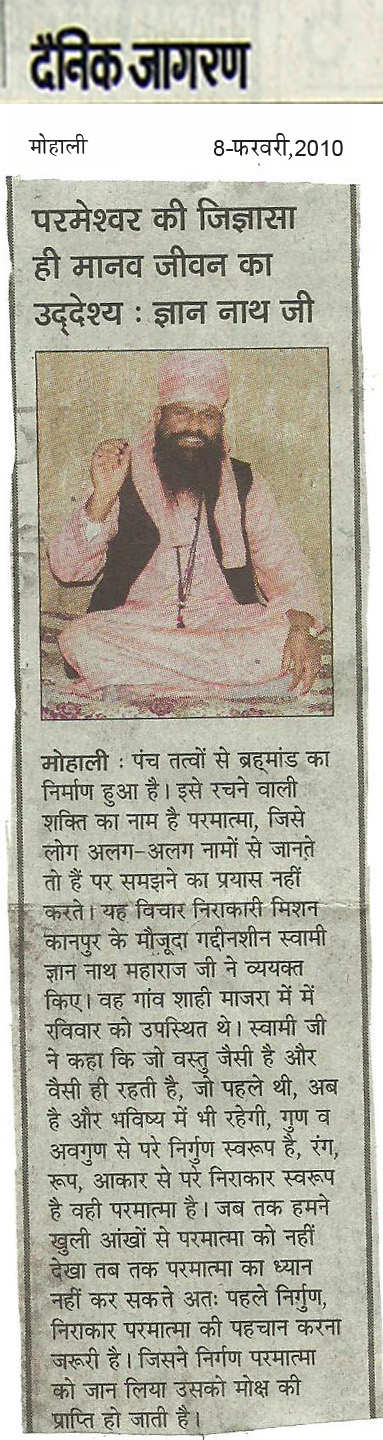 दैनिक जागरण
मोहाली 8-फरवरी,2010
परमेश्वर की जिज्ञासा
ही मानव जीवन का
उद्देश्य : ज्ञान नाथ जी
मोहाली : पंच तत्वों से ब्रह्मांड का
निर्माण हुआ है। इसे रचने वाली
शक्ति का नाम है परमात्मा, जिसे
लोग अलग-अलग नामों से जानते
तो हैं पर समझने का प्रयास नहीं
करते। यह विचार निराकारी मिशन
कानपुर के मौजूदा गद्दीनशीन स्वामी
ज्ञान नाथ महाराज जी ने व्ययक्त
किए। वह गांव शाही माजरा में में
रविवार को उपस्थित थे। स्वामी जी
ने कहा कि जो वस्तु जैसी है और
वैसी ही रहती है, जो पहले थी, अब
है और भविष्य में भी रहेगी, गुण व
अवगुण से परे निर्गुण स्वरूप है, रंग,
रूप, आकार से परे निराकार स्वरूप
है वही परमात्मा है। जब तक हमने
खुली आंखों से परमात्मा को नहीं
देखा तब तक परमात्मा का ध्यान
नहीं कर सकते अतः पहले निर्गुण,
निराकार परमात्मा की पहचान करना
जरूरी है। जिसने निर्गण परमात्मा
को जान लिया उसको मोक्ष की
प्राप्ति हो जाती है।